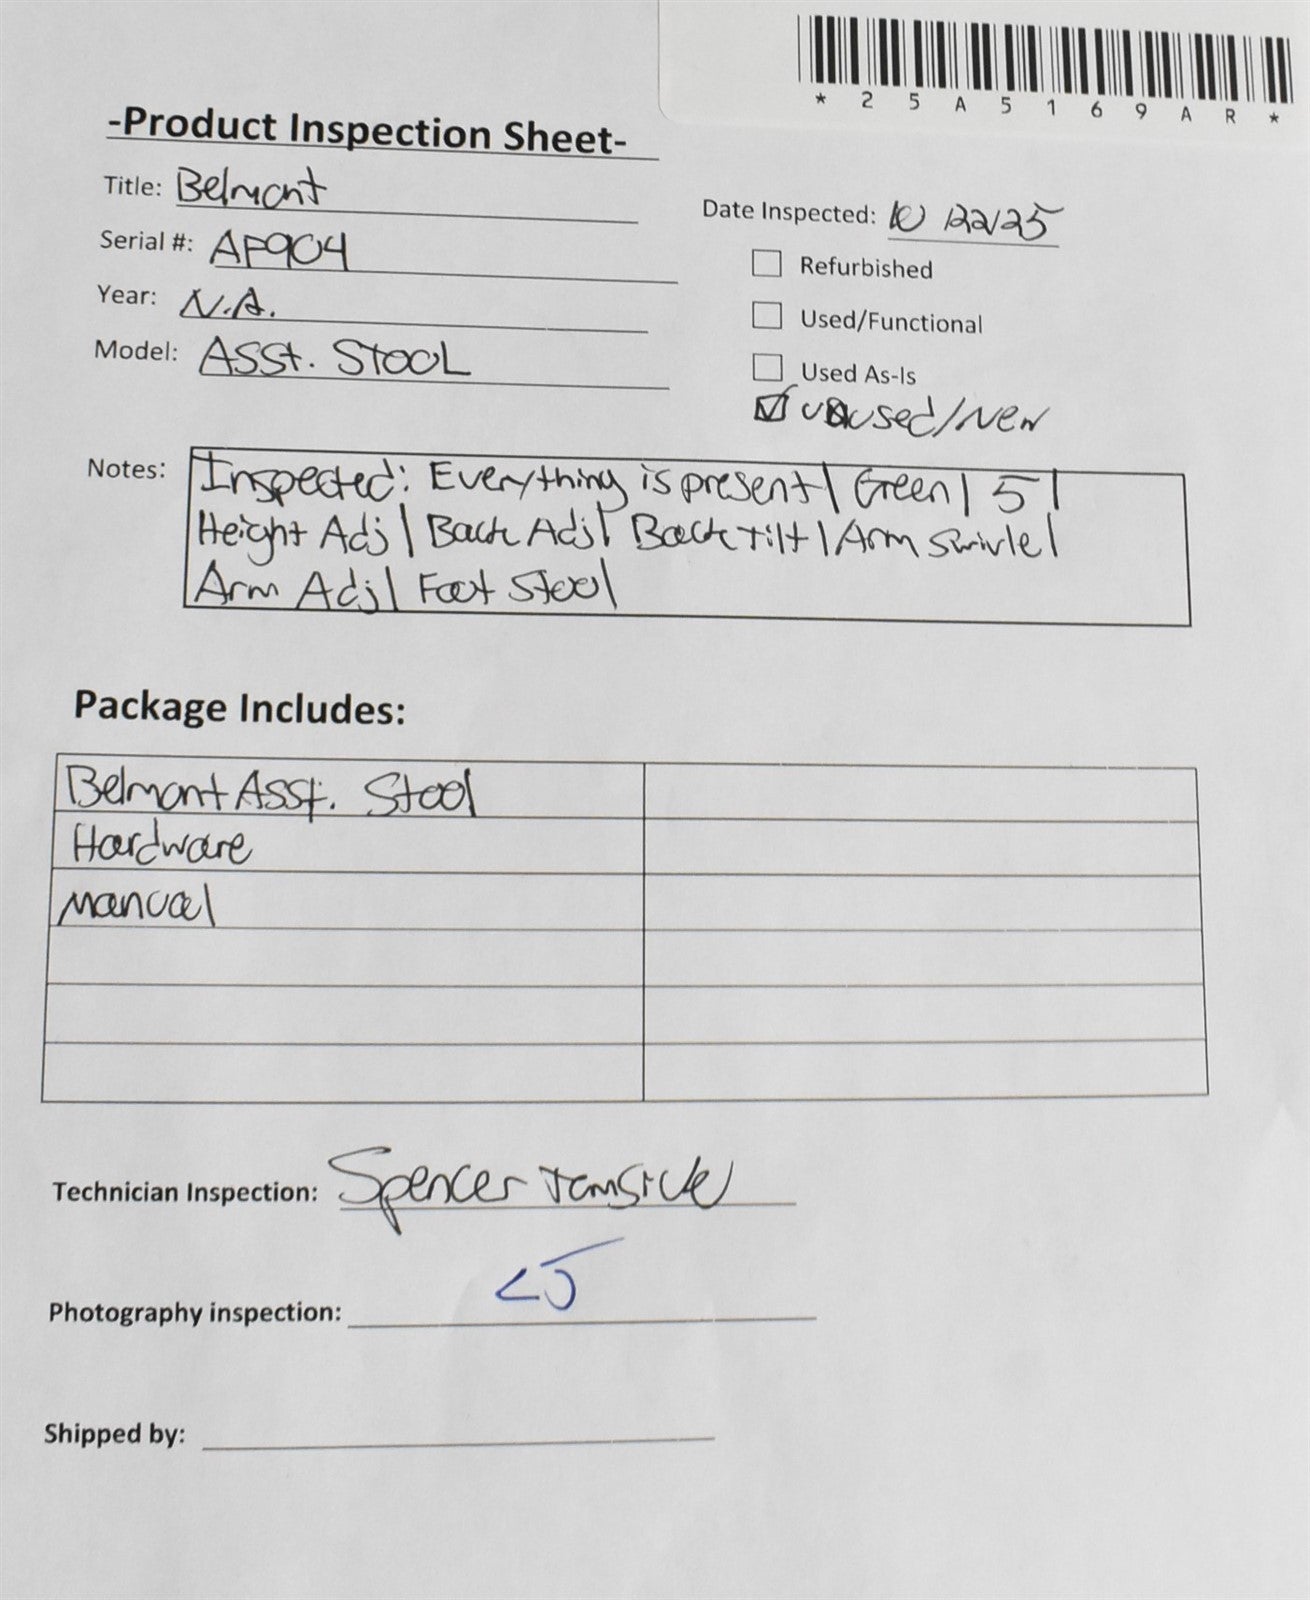 *25A5169AR*
-Product Inspection Sheet-
Title: Belmont
Date Inspected: 10/22/25
Serial #: AP904
Refurbished
Year: N.A.
Used/Functional
Model: Asst. Stool
Used As-Is
unused/New
Notes: Inspected: Everything is present| Green| 5|
Height Adj| Back Adj| Back Tilt| Arm Swivle|
Arm Adj| Foot Stool
Package Includes:
Belmont Asst. Stool
Hardware
manual
Technician Inspection: Spencer
Photography inspection:
Shipped by: